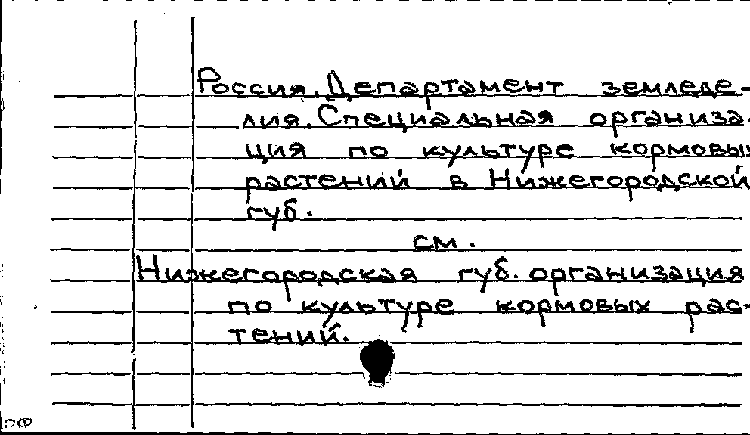 Россия. Департамент земледе-
лия. Специальная организа-
ция по культуре кормовых
растений в Нижегородской
губ.
см.
Нижегородская губ. организация
по культуре кормовых рас-
тений.